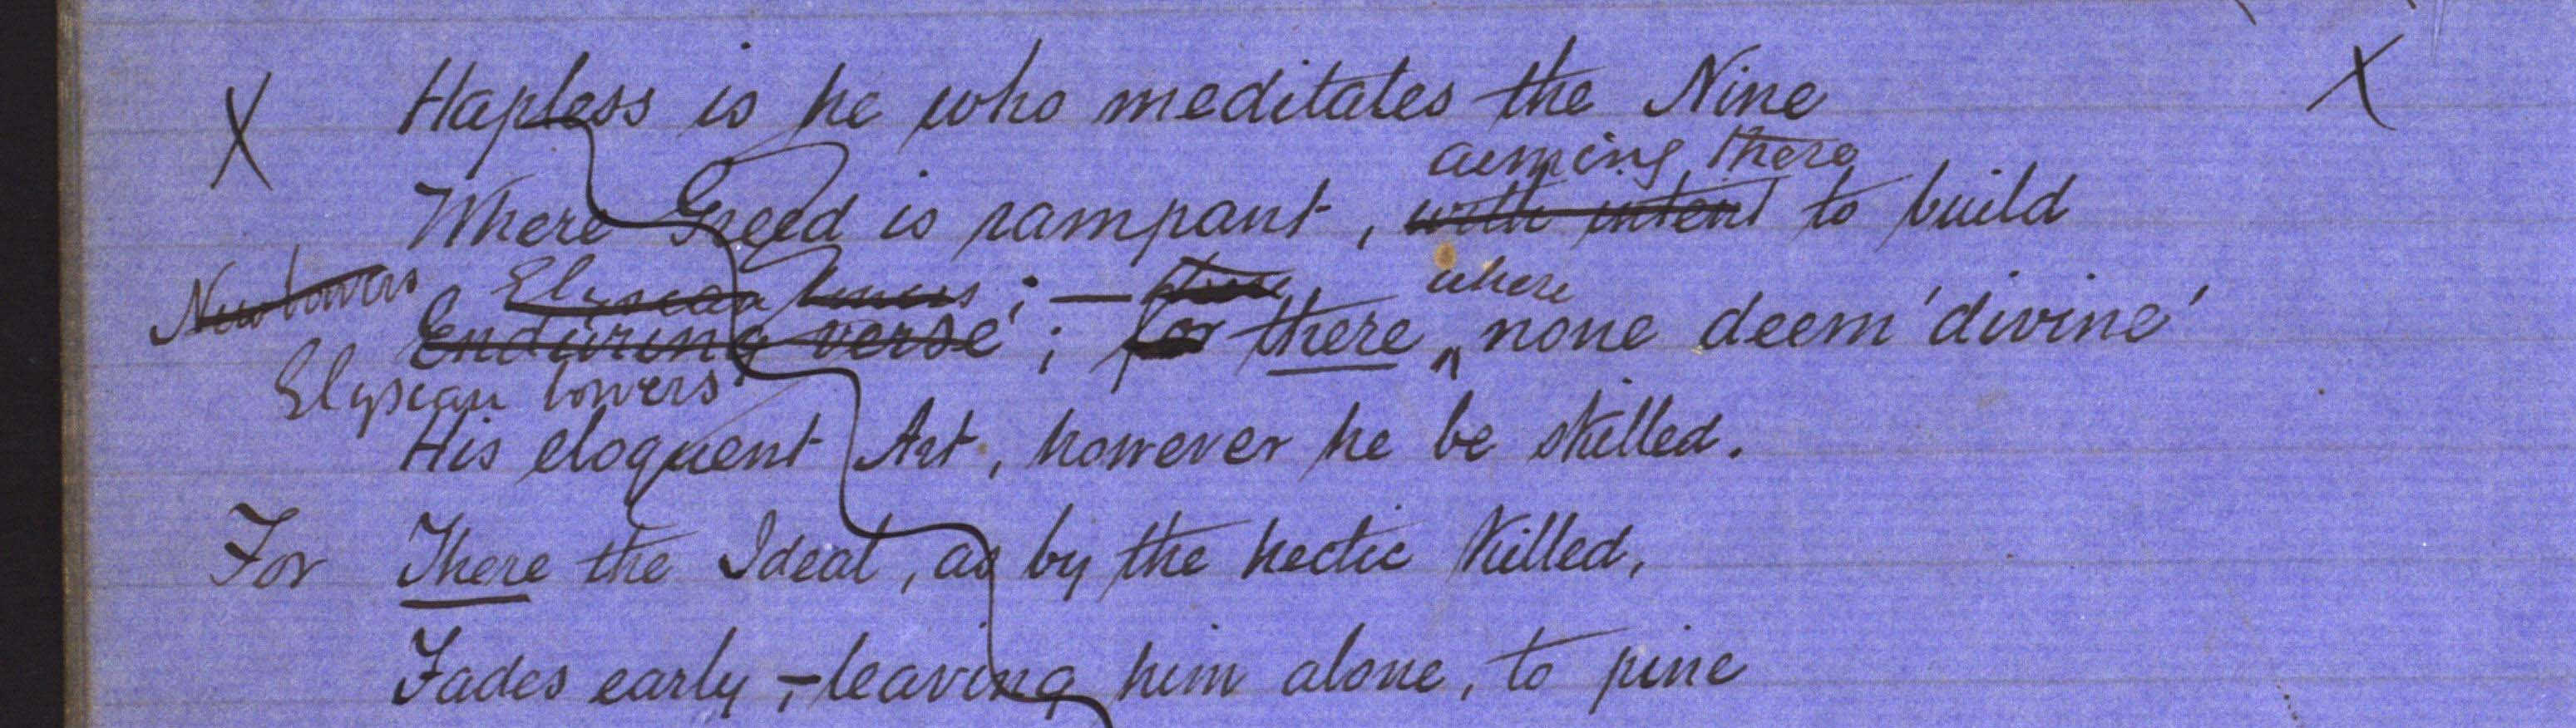 X Hapless is he who meditates the Nine X
aiming there
Where Greed is rampant, with intent to build
New towers Elysian towers ; — there where
Enduring verse ; for there ^ none deem 'divine'
Elysian towers
His eloquent Art, however he be skilled.
For There the Ideal, as by the hectic killed,
Fades early, – leaving him alone, to pine